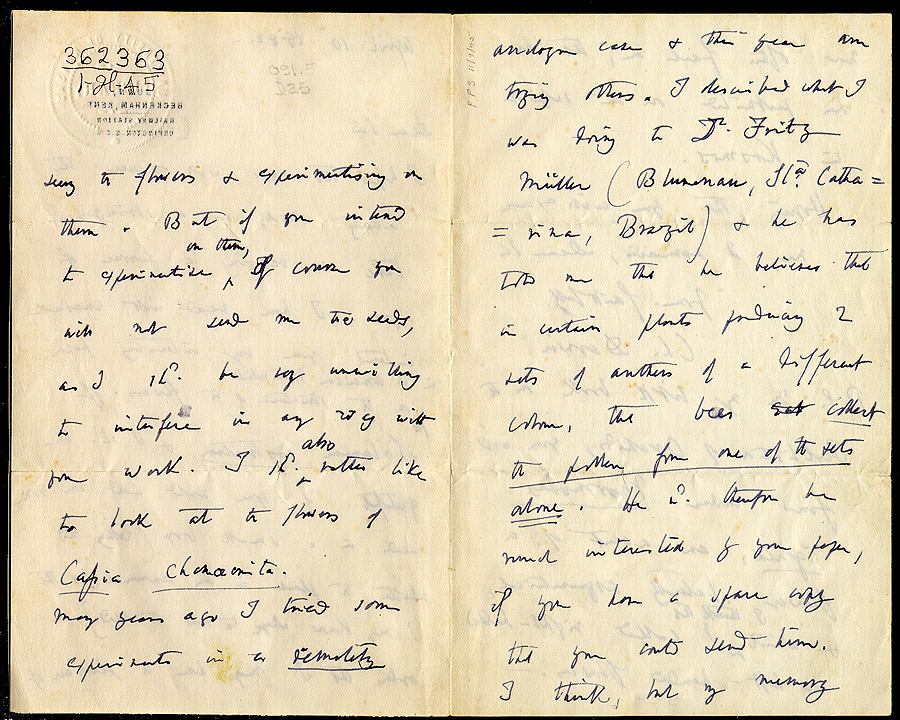 362363
BECKENHAM, KENT.
RAILWAY STATION
ORPINGTON S.E.R.
091.5
D25
PPS 11/9/75
seeing the flowers & experimentising on
them. But if you intend
to experimentise on them, of course you
will not send me the seeds,
as I shd. be very unwilling
to interfere in any way with
your work. I shd. also rather like
to look at the flowers of
Cassia Chamaecrista.
Many years ago I tried some
experiments in a remotely
analogous case & this year am
trying others. I described what I
was doing to Dr. Fritz
Müller (Blumenau, Sta. Catha=
=rina, Brazil) & he has
told me that he believes that
in certain plants producing 2
sets of anthers of a different
colour, the bees collect
the pollen from one of the sets
alone. He wd. therefore be
much interested by your paper,
if you have a spare copy
that you could send him.
I think, but my memory